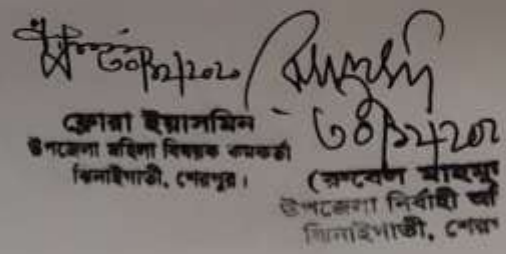 ৩০/১২/২০২০
ফ্লোরা ইয়াসমিন
উপজেলা মহিলা বিষয়ক কর্মকর্তা
ঝিনাইগাতী, শেরপুর।
৩০/১২/২০২
(রুবেল মাহমুদ
উপজেলা নির্বাহী অফি
ঝিনাইগাতী, শেরপু